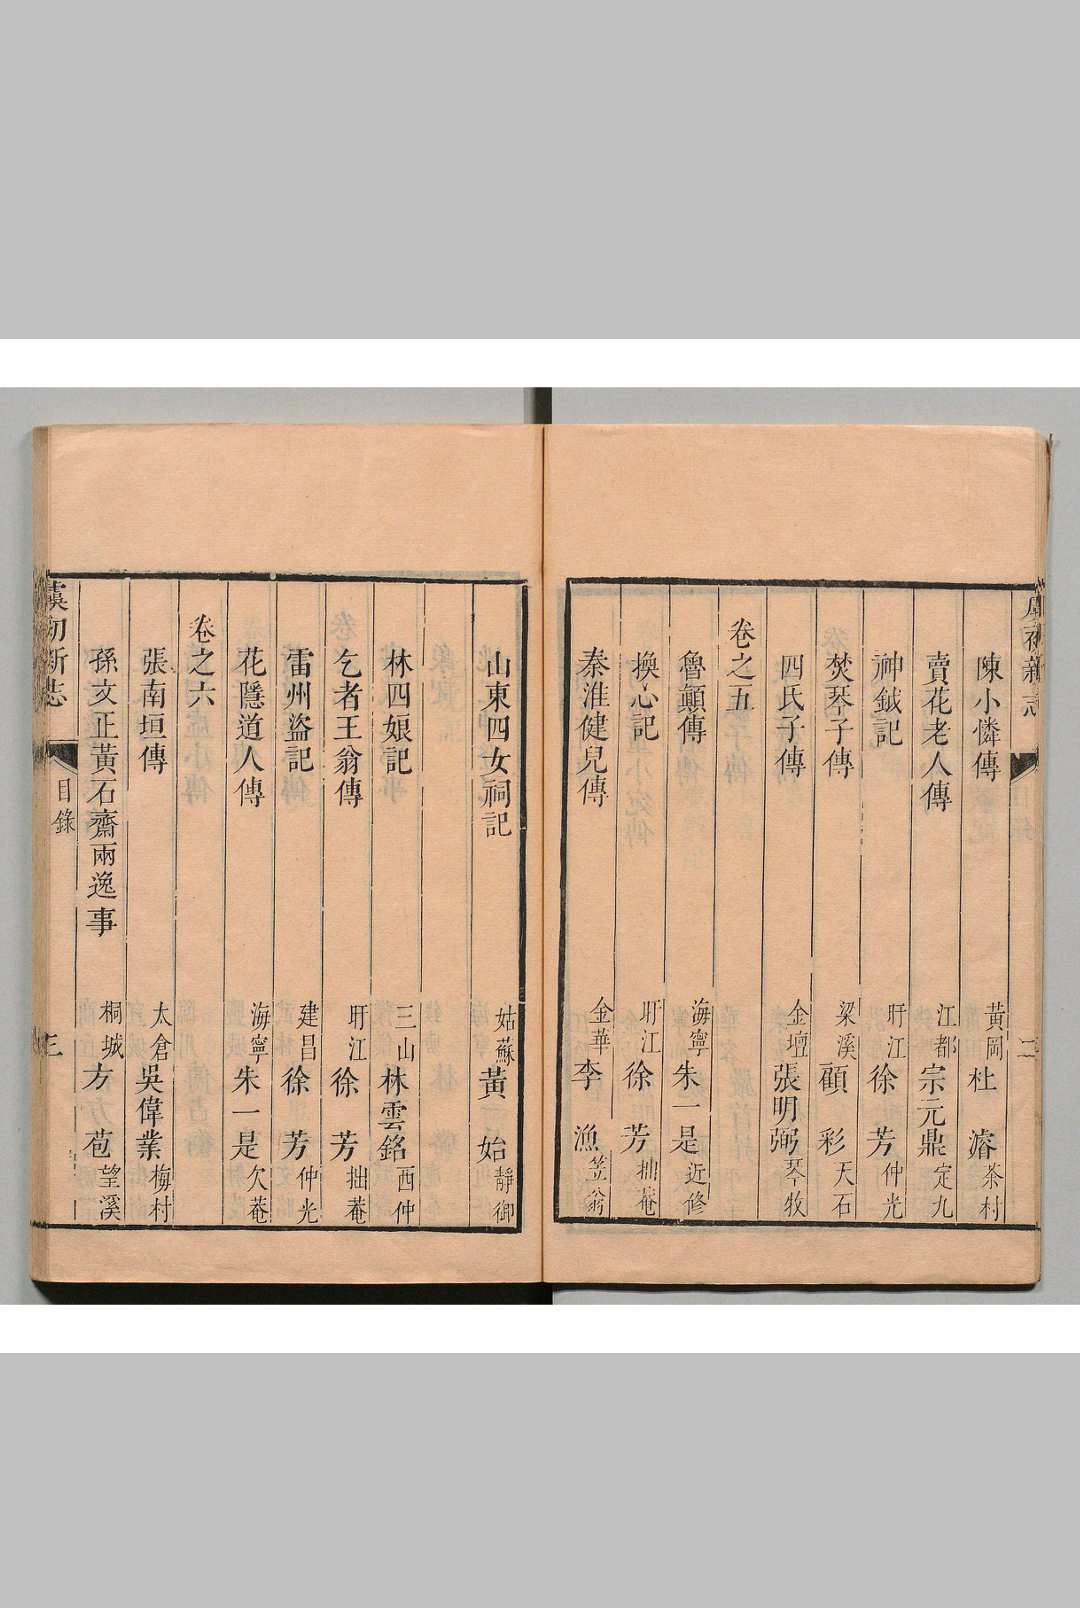 虞初新志
陳小憐傳 黃岡 杜濬 茶村
賣花老人傳 江都 宗元鼎 定九
神鉞記 旴江 徐芳 仲光
焚琴子傳 梁溪 顧彩 天石
四氏子傳 金壇 張明弼 琴牧
卷之五
魯顛傳 海寧 朱一是 近修
換心記 旴江 徐芳 拙菴
秦淮健兒傳 金華 李漁 笠翁
山東四女祠記 姑蘇 黃始 靜御
林四娘記 三山 林雲銘 西仲
乞者王翁傳 旴江 徐芳 拙菴
雷州盜記 建昌 徐芳 仲光
花隱道人傳 海寧 朱一是 欠菴
卷之六
張南垣傳 太倉 吳偉業 梅村
孫文正黃石齋兩逸事 桐城 方苞 望溪
虞初新志 目錄 三